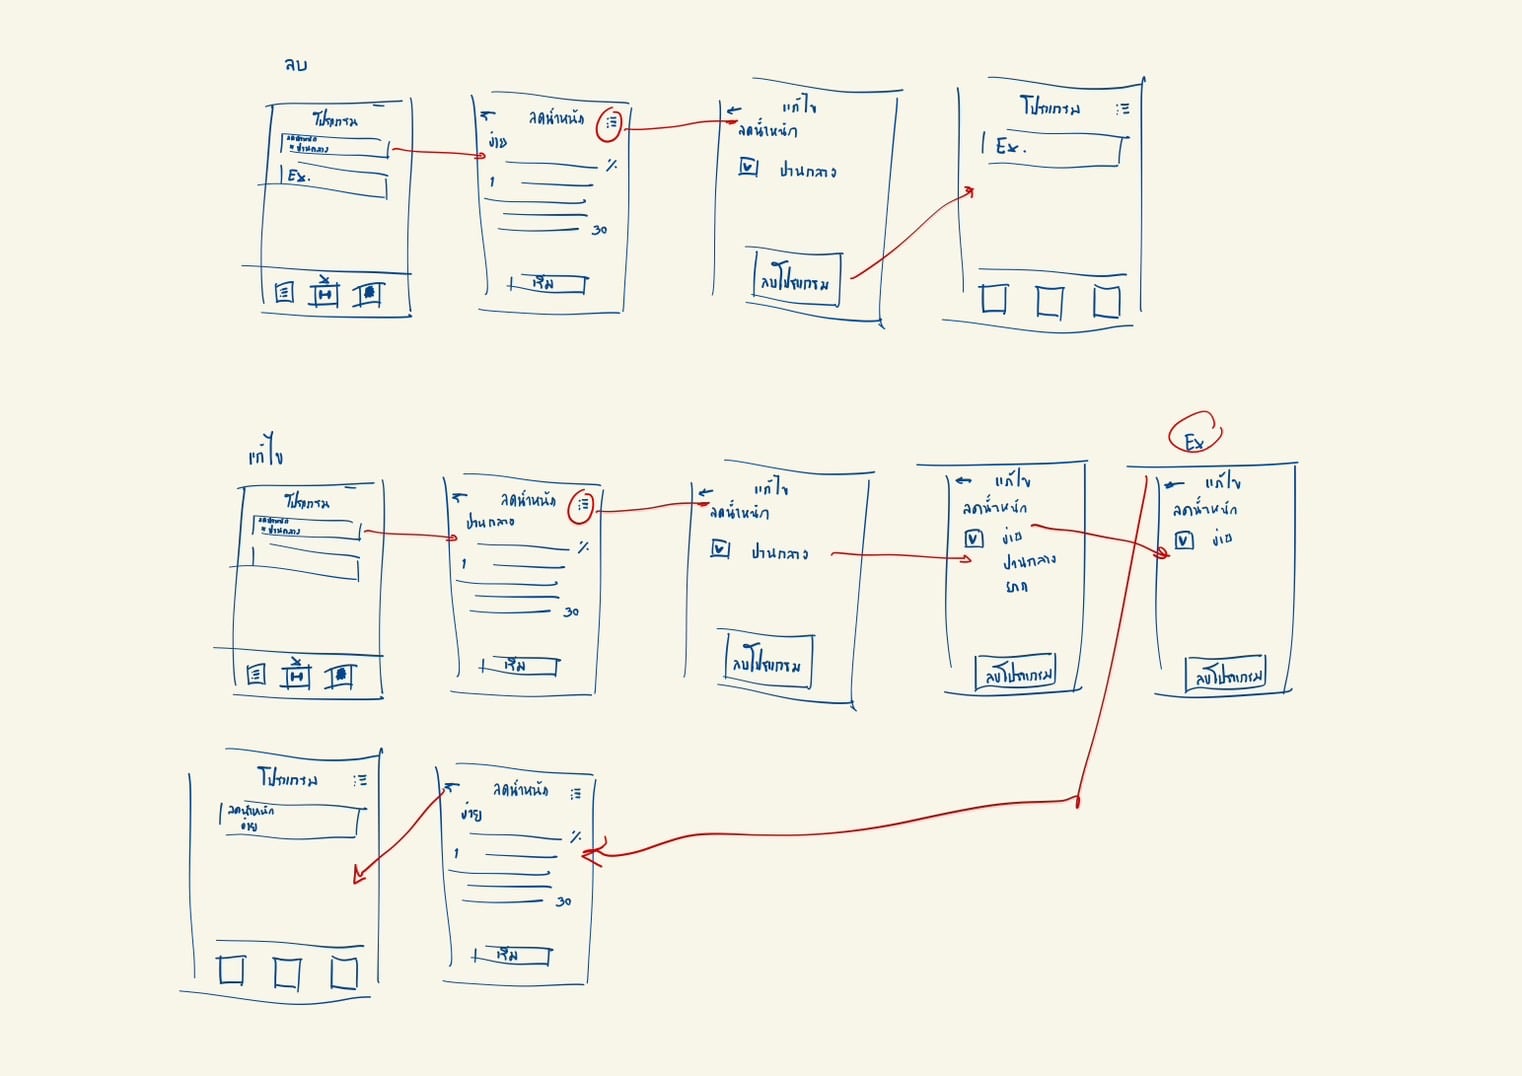 ลบ
โปรแกรม
ลดน้ำหนัก
ปานกลาง
Ex.
ลดน้ำหนัก
ง่าย
%
1
30
เริ่ม
แก้ไข
ลดน้ำหนัก
ปานกลาง
ลบโปรแกรม
โปรแกรม
Ex.
แก้ไข
โปรแกรม
ลดน้ำหนัก
ปานกลาง
ลดน้ำหนัก
ปานกลาง
%
1
30
เริ่ม
แก้ไข
ลดน้ำหนัก
ปานกลาง
ลบโปรแกรม
แก้ไข
ลดน้ำหนัก
ง่าย
ปานกลาง
ยาก
ลบโปรแกรม
Ex
แก้ไข
ลดน้ำหนัก
ง่าย
ลบโปรแกรม
โปรแกรม
ลดน้ำหนัก
ง่าย
ลดน้ำหนัก
ง่าย
%
1
30
เริ่ม